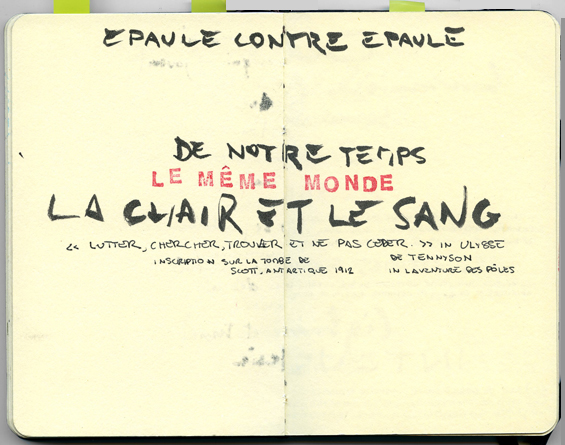 EPAULE CONTRE EPAULE
DE NOTRE TEMPS
LE MÊME MONDE
LA CHAIR ET LE SANG
<< LUTTER, CHERCHER, TROUVER ET NE PAS CEDER. >> IN ULYSSE
INSCRIPTION SUR LA TOMBE DE DE TENNYSON
SCOTT, ANTARTIQUE 1912 IN L'AVENTURE DES PÔLES